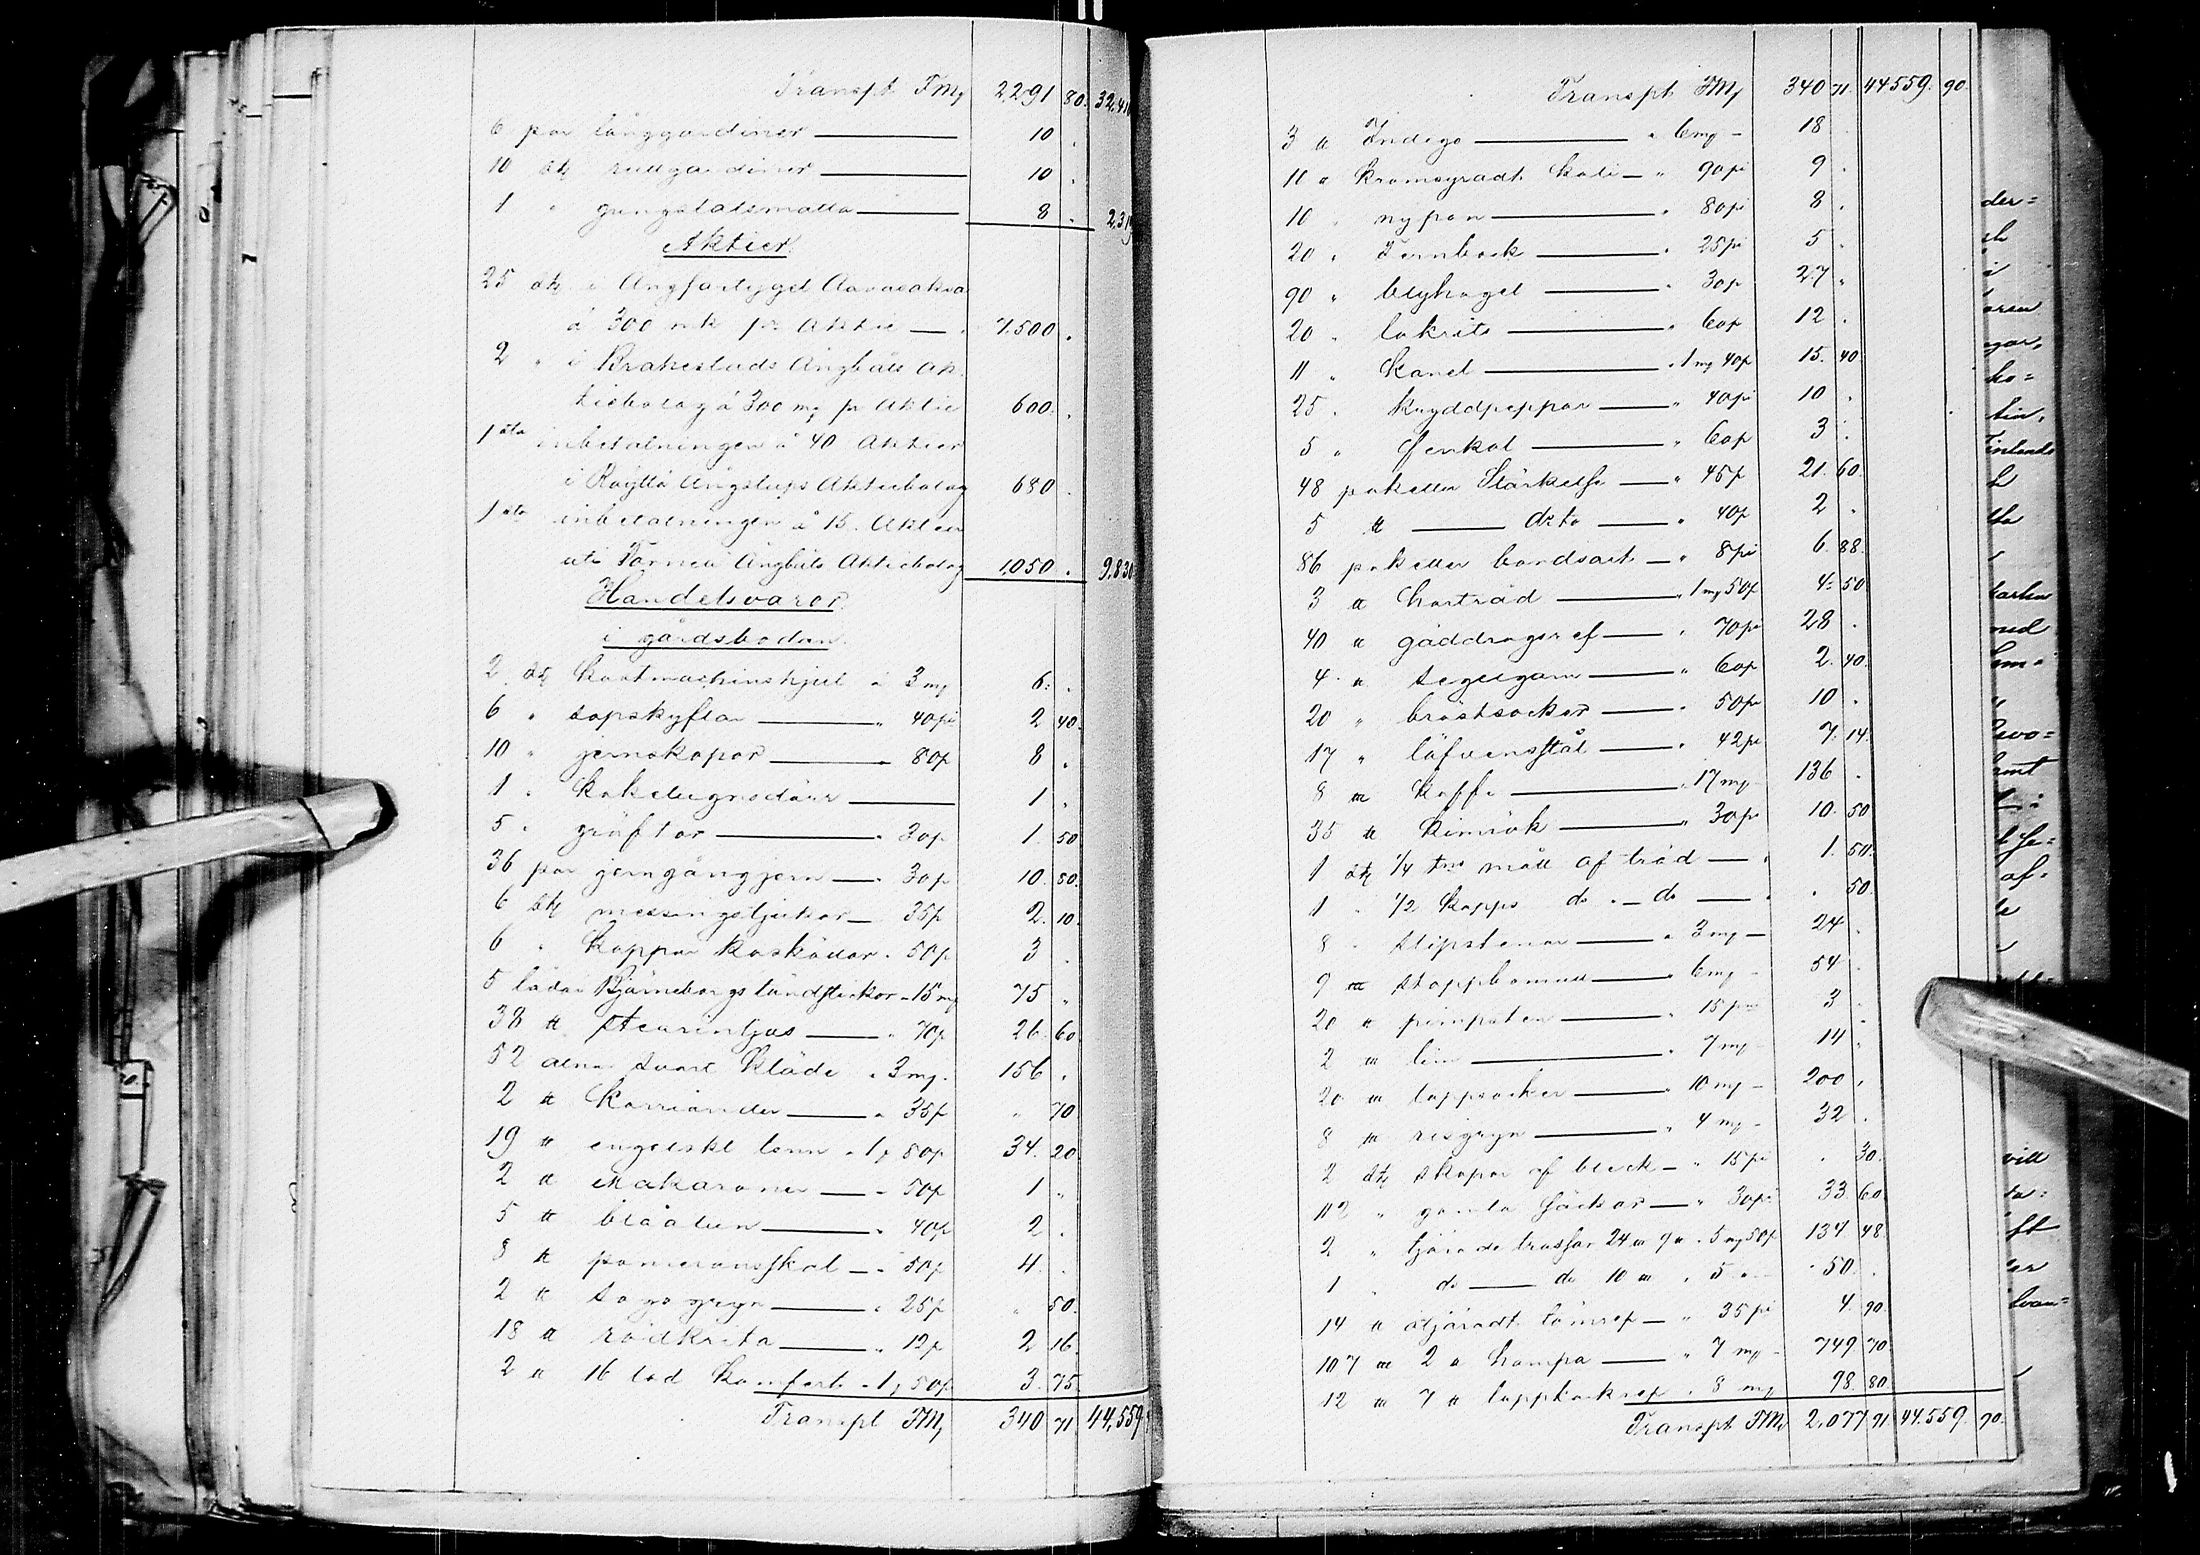 Transpt FMg 2291 80. 32,410
6 par långgardiner 10 .
10 stk rullgardiner 10 .
1 " gungstolsmatta 8 . 2,319
Aktier.
25 stk i Ångfartyget Aavasaksa
à 300 mk pr Aktie 7.500 .
2 " i Brahestads Ångbåts Ak-
tiebolag à 300 mg pr Aktie 600. .
1sta inbetalningen å 40 Aktier
i Röyttä Ångslups Aktiebolag 680 .
1sta inbetalningen å 15. Aktier
uti Torneå Ångbåts Aktiebolag 1,050 . 9,830
Handelsvaror
i gårdsboden.
2 stk Kastmaskinshjul à 3 mg 6. .
6 " sopskyflar " 40 pi 2 40.
10 " jernskopor " 80p 8 .
1 " Kakelugnsdörr 1 .
5 " gräftor " 30p 1. 50
36 par jerngångjern " 30p 10. 80.
6 stk messingsljukor 35p 2. 10.
6 " Koppar Kaskådor " 50p 3 .
5 lådor Björneborgs tändstickor " 15 mg 75 "
38 ℔ Stearinljus " 70p 26. 60
52 alnar svart Kläde " 3 mg. 156 .
2 ℔ Korriander " 35p " 70
19 ℔ engelskt tenn " 1, 80p 34. 20
2 ℔ Makaroner " 50p 1 "
5 ℔ blåalun " 40p 2 .
8 ℔ pomeransskal " 50p 4. .
2 ℔ sagogryn " 25p " 50.
18 ℔ rödkrita " 12p 2 16.
2 ℔ 16 lod Kamfert " 1, 50p 3. 75.
Transpt FMg 340 71 44,559
Transpt FMg 340 71. 44559. 90.
3 ℔ Indigo " 6 mg 18 .
10 " Kromsyradt Kali " 90 pi 9 .
10 " nypon " 80 pi 8 .
20 " Fernbock " 25 pi 5 .
90 " blyhagel " 30p 27 "
20 " lakrits " 60p 12 .
11 " Kanel " 1 mg 40p 15. 40
25 " Kryddpeppar " 40 pi 10 .
5 " fenkol " 60p 3 .
48 paketter Stärkelse " 45p 21. 60.
5 ℔ dito " 40p 2 .
86 paketter bordsalt " 8 pi 6. 88.
3 ℔ Kartråd " 1 mg 50p 4. 50
40 ℔ gäddragsref " 70 pi 28 .
4 ℔ segelgarn " 60p 2. 40.
20 " bröstsocker " 50 pi 10 .
17 " löfvenstål " 42 pi 7. 14.
8 " Kaffe " 17 mg 136 .
35 ℔ Kimrök " 30 pi 10. 50
1 stk 1/4 tns mått af träd " 1. 50.
1 " 1/2 Kapps do " do " . 50.
8 " Slipstenar " 3 mg 24 .
9 stoppbomull " 6 mg 54 .
20 ℔ pimpsten " 15 pi 3 .
2 lim " 7 mg 14 .
20 toppsocker " 10 mg 200 .
8 risgryn " 4 mg 32 .
2 stk skopor af bleck " 15 pi . 30.
112 " gamla säckar " 30 pi 33. 60
2 " tjärade trossar 24 9 ℔ " 5 mg 50p 134 48
1 " do do 10 " 5 " 50. .
14 ℔ otjäradt tömref " 35 pi 4. 90.
107 2 ℔ hampa " 7 mg 749 70.
12 7 ℔ " 8 mg 98. 80
Transpt FMg 2,077 91 44.559. 90.